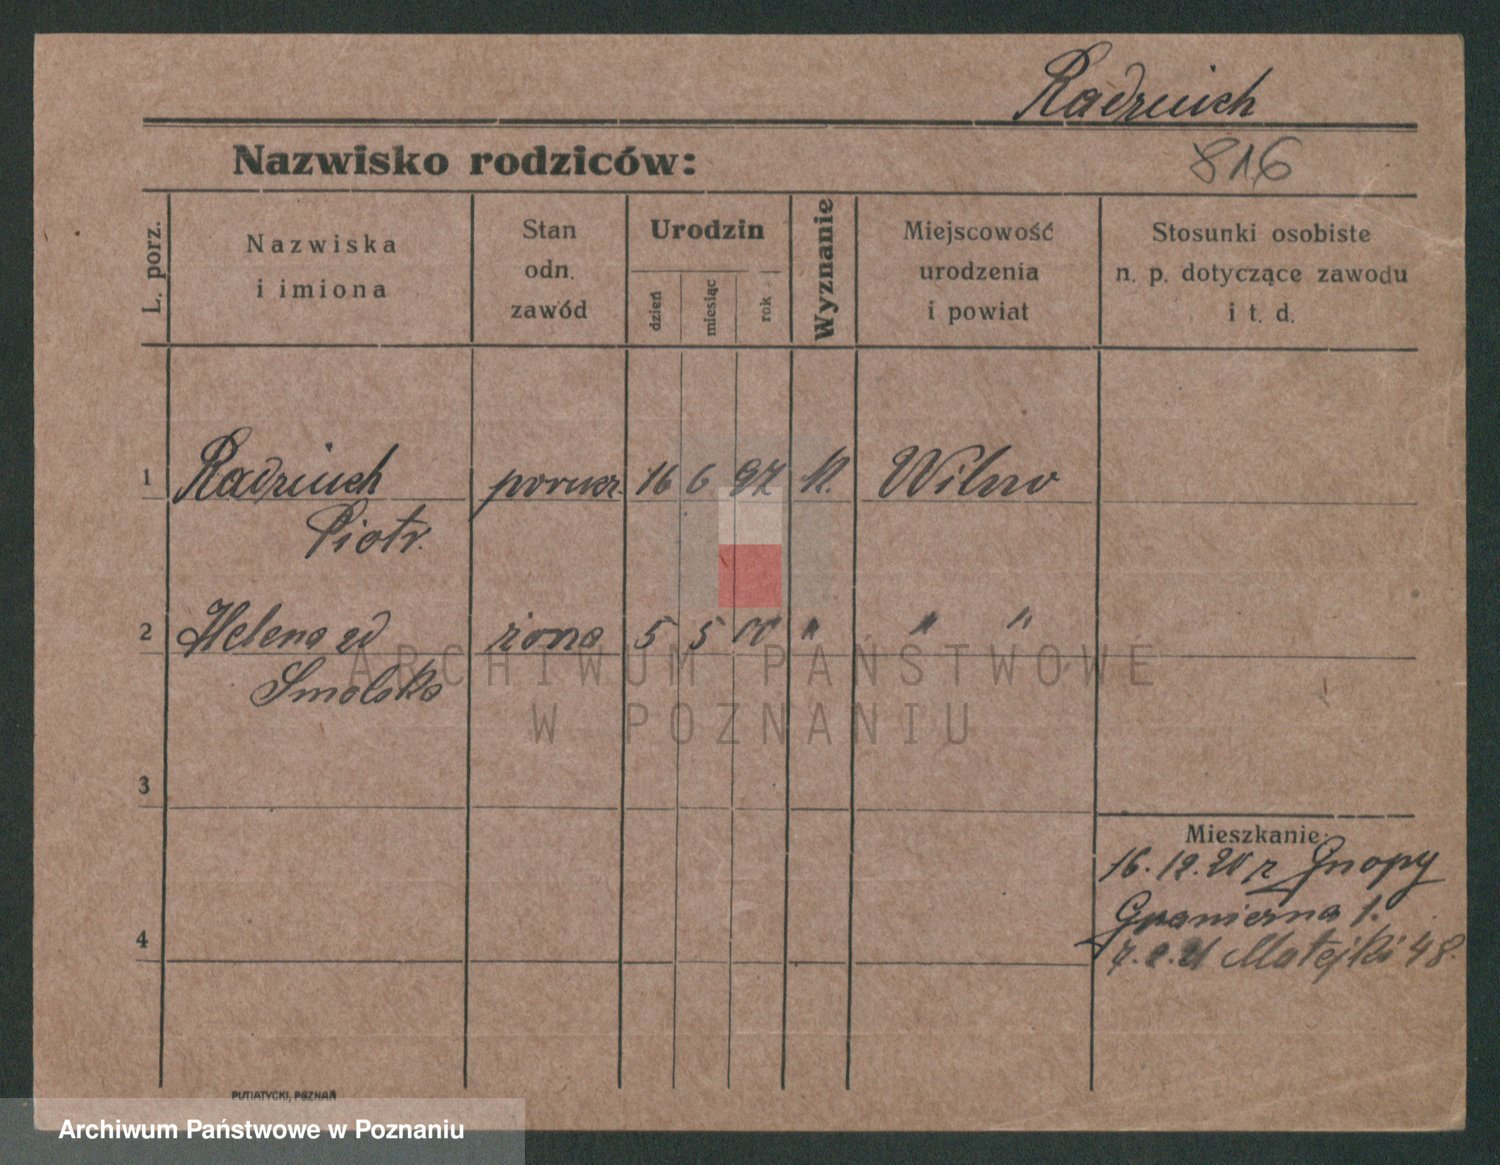 Radziuch
816
Nazwisko rodziców:
L. porz.
Nazwiska
i imiona
Stan
odn.
zawód
Urodzin
dzień
miesiąc
rok
Wyznanie
Miejscowość
urodzenia
i powiat
Stosunki osobiste
n. p. dotyczące zawodu
i t. d.
1 Radziuch porucz. 16 6 97 Wilno
Piotr.
2 Helena zd żona 5 5 00 " " "
Smolska
ARCHIWUM PAŃSTWOWE
W POZNANIU
3
Mieszkanie:
16. 12. 20 z
1.
4
Matejki 48.
PUTIATYCKI, POZNAŃ
Archiwum Państwowe w Poznaniu